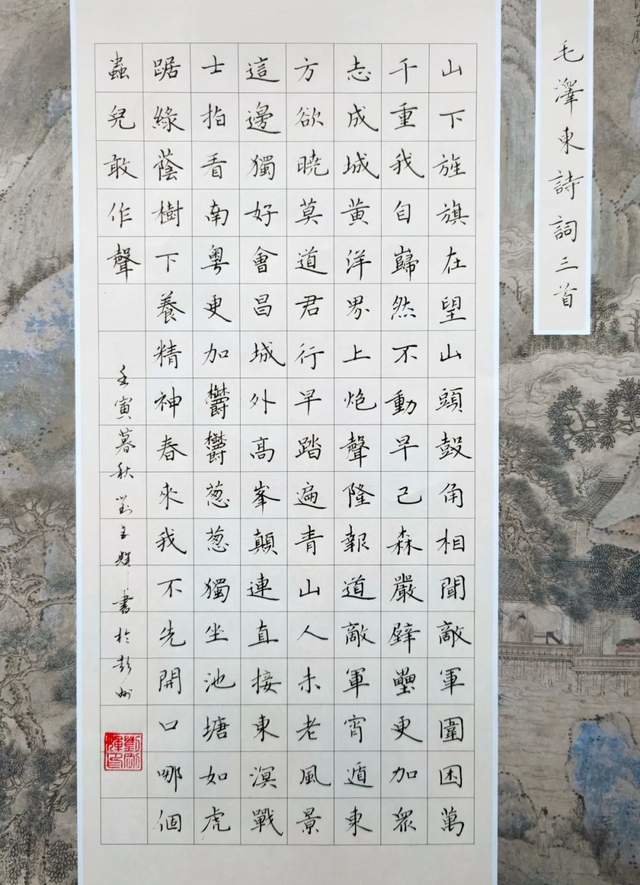 毛澤東詩詞三首
山下旌旗在望山頭鼓角相聞敵軍圍困萬
千重我自巋然不動早已森嚴壁壘更加眾
志成城黃洋界上炮聲隆報道敵軍宵遁東
方欲曉莫道君行早踏遍青山人未老風景
這邊獨好會昌城外高峯顛連直接東溟戰
士指看南粵更加鬱鬱葱葱獨坐池塘如虎
踞綠蔭樹下養精神春來我不先開口哪個
蟲兒敢作聲
壬寅暮秋劉書於彭州